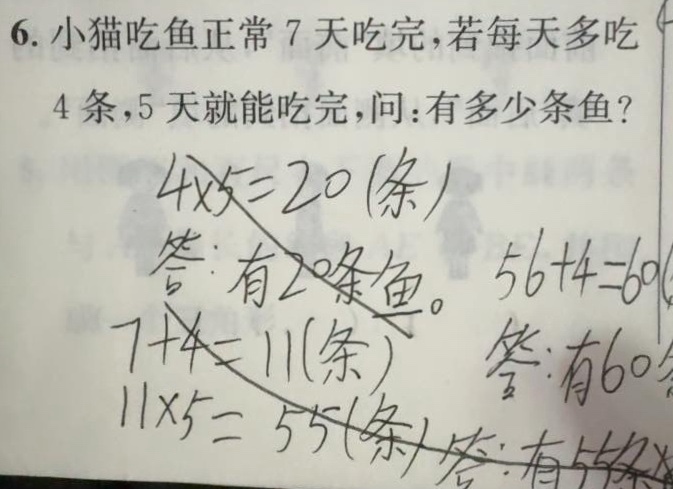 6. 小猫吃鱼正常7天吃完,若每天多吃
4条,5天就能吃完,问:有多少条鱼?
4×5=20(条)
答:有20条鱼。
56+4=60(
7+4=11(条)
答:有60
11×5=55(条)
答:有55条